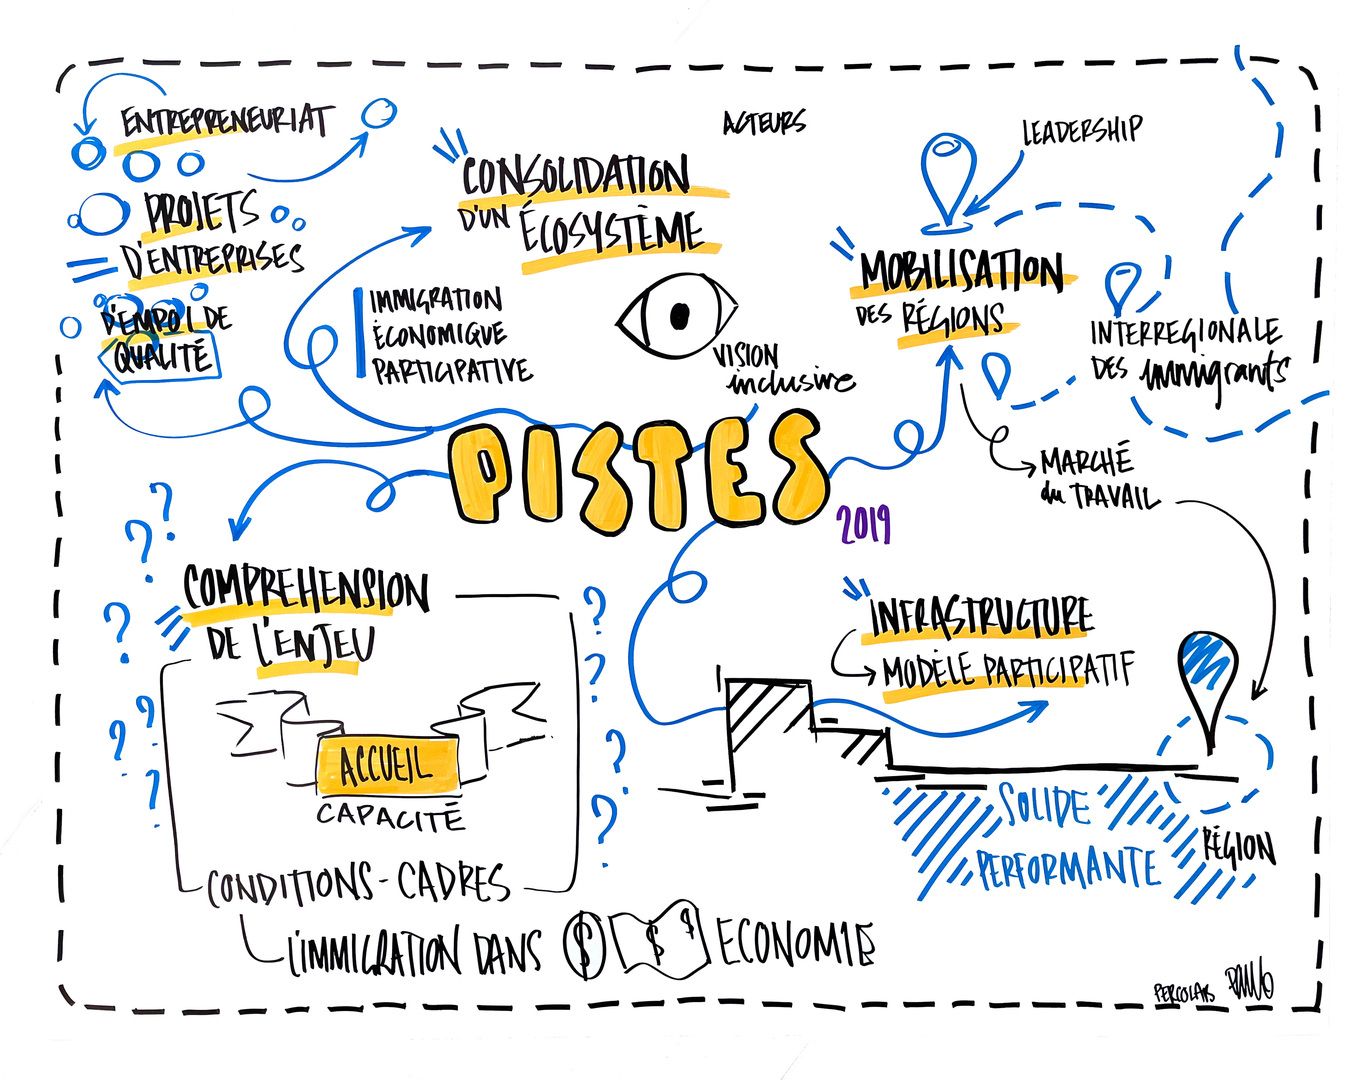 ENTREPRENEURIAT
PROJETS
D'ENTREPRISES
D'EMPLOI DE
QUALITÉ
CONSOLIDATION
D'UN ÉCOSYSTÈME
IMMIGRATION
ÉCONOMIQUE
PARTICIPATIVE
ACTEURS
VISION
inclusive
LEADERSHIP
MOBILISATION
DES RÉGIONS
INTERREGIONALE
DES immigrants
MARCHÉ
du TRAVAIL
PISTES
2019
COMPREHENSION
DE L'ENJEU
ACCUEIL
CAPACITÉ
CONDITIONS-CADRES
L'IMMIGRATION DANS $ $ $ ECONOMIE
INFRASTRUCTURE
MODÈLE PARTICIPATIF
SOLIDE
PERFORMANTE
RÉGION
PERCOLAB